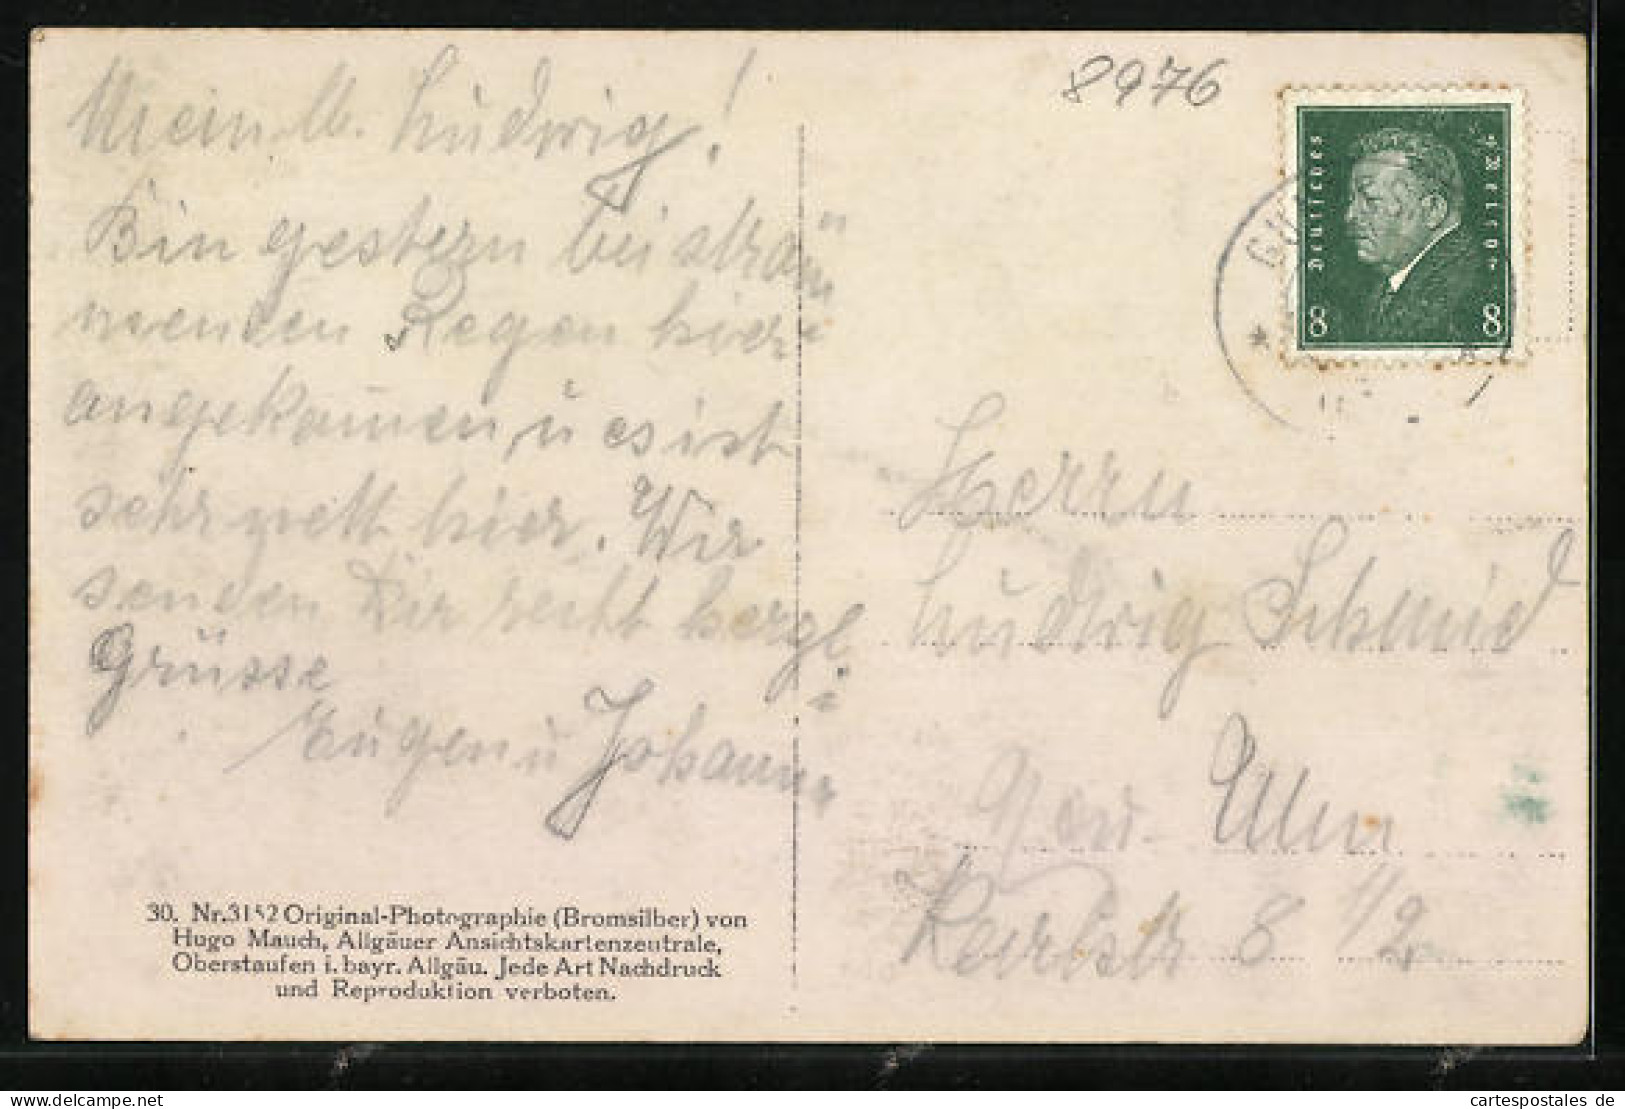 8976
Deutsches Reich
8 8
Mein lb. Ludwig!
Bin gestern bei strö-
menden Regen hier
angekom̅en, u es ist
sehr nett hier. Wir
senden Dir recht herzl.
Grüsse
Eugen u Johann
Herrn
Ludwig Schmid
Neu-Ulm
8 1/2
30. Nr.3152 Original-Photographie (Bromsilber) von
Hugo Mauch, Allgäuer Ansichtskartenzentrale,
Oberstaufen i. bayr. Allgäu. Jede Art Nachdruck
und Reproduktion verboten.
cartespostales de